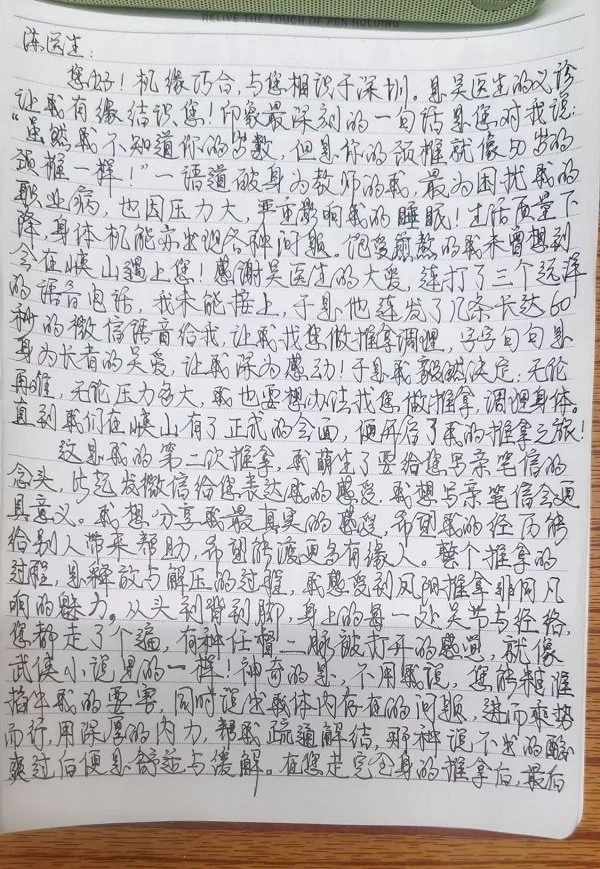 RELIVE THE TOUCH OF ZEN HOLDING
陈医生：
您好！机缘巧合，与您相识于深圳。是吴医生的义诊
让我有缘结识您！印象最深刻的一句话是您对我说：
“虽然我不知道你的岁数，但是你的颈椎就像50岁的
颈椎一样！”一语道破身为教师的我，最为困扰我的
职业病，也因压力大，严重影响我的睡眠！生活质量下
降，身体机能亦出现各种问题。饱受煎熬的我未曾想到
会在峡山遇上您！感谢吴医生的大爱，连打了三个远洋
的语音电话，我未能接上，于是他连发了几条长达60
秒的微信语音给我，让我找您做推拿调理，字字句句是
身为长者的关爱，让我深为感动！于是我毅然决定：无论
再难，无论压力多大，我也要想办法找您做推拿，调理身体。
直到我们在峡山有了正式的会面，便开启了我的推拿之旅！
这是我的第二次推拿，我萌生了要给您写亲笔信的
念头，比起发微信给您表达我的感受，我想写亲笔信会更
具意义。我想分享我最真实的感受，希望我的经历能
给别人带来帮助，希望能渡更多有缘人。整个推拿的
过程，是释放与解压的过程，我感受到凤阳推拿非同凡
响的魅力。从头到背到脚，身上的每一处关节与经络，
您都走了个遍，有种任督二脉被打开的感觉，就像
武侠小说里的一样！神奇的是，不用我说，您能精准
掐中我的要害，同时说出我体内存在的问题，进而乘势
而行，用深厚的内力，帮我疏通解结，那种说不出的酸
爽过后便是舒适与缓解。在您走完全身的推拿后，最后